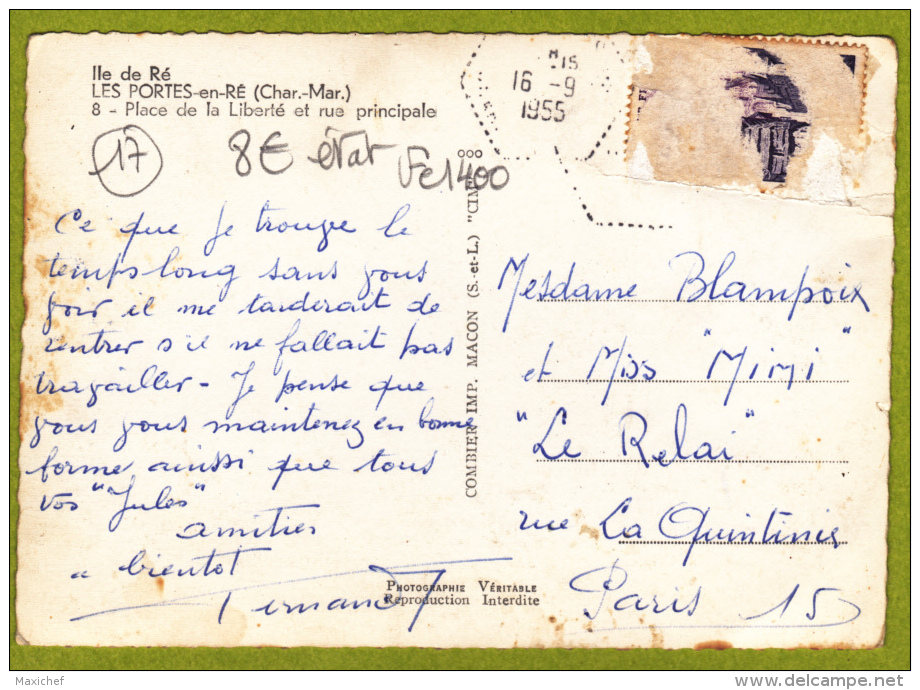 Ile de Ré
LES PORTES-en-RÉ (Char.-Mar.)
8 - Place de la Liberté et rue principale
17
8€ état
Fc1400
16 -9
1955
Ce que je trouve le
temps long sans vous
voir il me tarderait de
rentrer s'il ne fallait pas
travailler - Je pense que
vous vous maintenez en bonne
forme ainsi que tous
vos "Jules"
amitiés
a bientot
Fernand
COMBIER IMP. MACON (S.-et-L.) "CIM"
Mesdame Blampoix
et Miss "Mimi"
"Le Relai"
rue La Quintinie
Paris 15
PHOTOGRAPHIE VÉRITABLE
Reproduction Interdite
Maxichef
delcampe.net